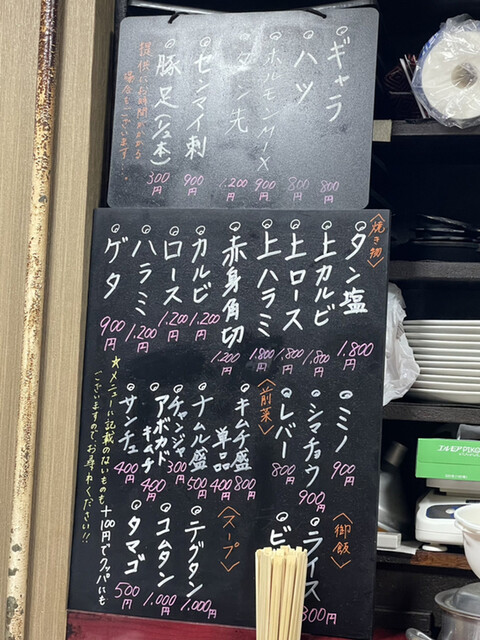 ギャラ 800円
ハツ 800円
ホルモンMIX 900円
タン先 1,200円
センマイ刺 900円
豚足(1/2本) 300円
提供にお時間がかかる
場合もございます...
〈焼き物〉
タン塩 1,800円
上カルビ 1,800円
上ロース 1,800円
上ハラミ 1,800円
赤身角切 1,200円
カルビ 1,200円
ロース 1,200円
ハラミ 1,200円
ゲタ 900円
ミノ 900円
シマチョウ 900円
レバー 800円
〈前菜〉
キムチ盛 800円
単品 400円
ナムル盛 500円
チャンジャ 300円
アボカド
キムチ 400円
サンチュ 400円
〈御飯〉
ライス 300円
ビ
〈スープ〉
テグタン 1,000円
コムタン 1,000円
タマゴ 500円
+100円でクッパにも
★メニューに記載のないものも
ございますので、お尋ねください!!
エルモア